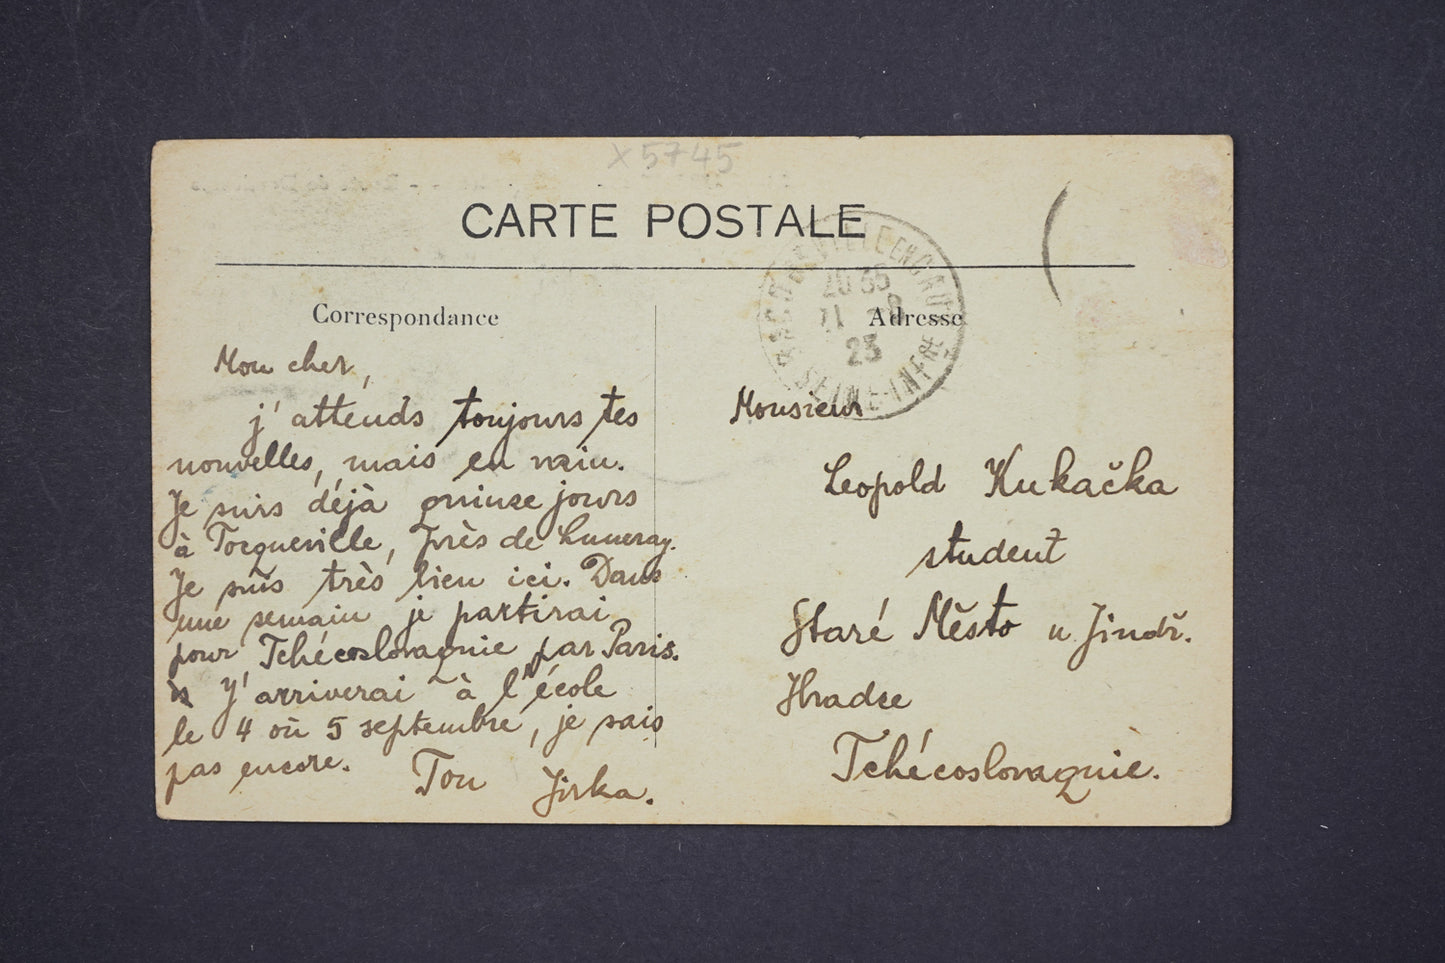 x 5745
CARTE POSTALE
BACQUEVILLE EN CAUX
20 35
11 -8
23
SEINE-INFRE
Correspondance
Adresse
Mon cher,
j'attends toujours tes
nouvelles, mais en vain.
Je suis déjà quinze jours
à Tocqueville, près de Luneray.
Je suis très bien ici. Dans
une semain je partirai
pour Tchécoslovaquie par Paris.
J'arriverai à l'école
le 4 où 5 septembre, je sais
pas encore.
Ton Jirka.
Monsieur
Leopold Kukačka
student
Staré Město u Jindř.
Hradce
Tchécoslovaquie.